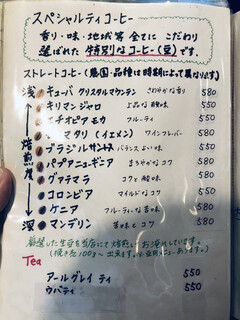 スペシャルティコーヒー
香り・味・地域等 全てに こだわり
選ばれた 特別なコーヒー(豆)です。
ストレートコーヒー(農園・品種は時期によって異なります)
浅 キューバ クリスタルマウンテン さわやかな香り 580
キリマンジャロ 上品な酸味 550
エチオピアモカ フルーティ 550
マタリ(イエメン) ワインフレーバー 580
焙煎度
ブラジルサントス バランスよい味 550
パプアニューギニア まろやかなコク 580
グァテマラ コクと酸味 580
コロンビア マイルドなコク 550
ケニア フルーティーな苦味 580
深 マンデリン 苦味とコク 580
厳選した生豆を当店にて焙煎
しています。
(挽き売 100g〜 出来ます
メニューあります。)
Tea
アールグレイ ティ 550
ウバティ 550